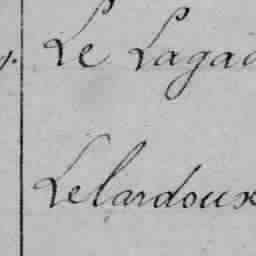 Le Lagad
Lelardoux